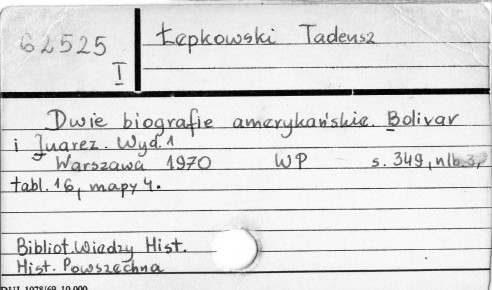 62525
I
Łępkowski Tadeusz
Dwie biografie amerykańskie. Bolivar
i Juarez. Wyd. 1
Warszawa 1970 WP s. 349, nlb. 3,
tabl. 16, mapy 4.
Bibliot. Wiedzy Hist.
Hist. Powszechna